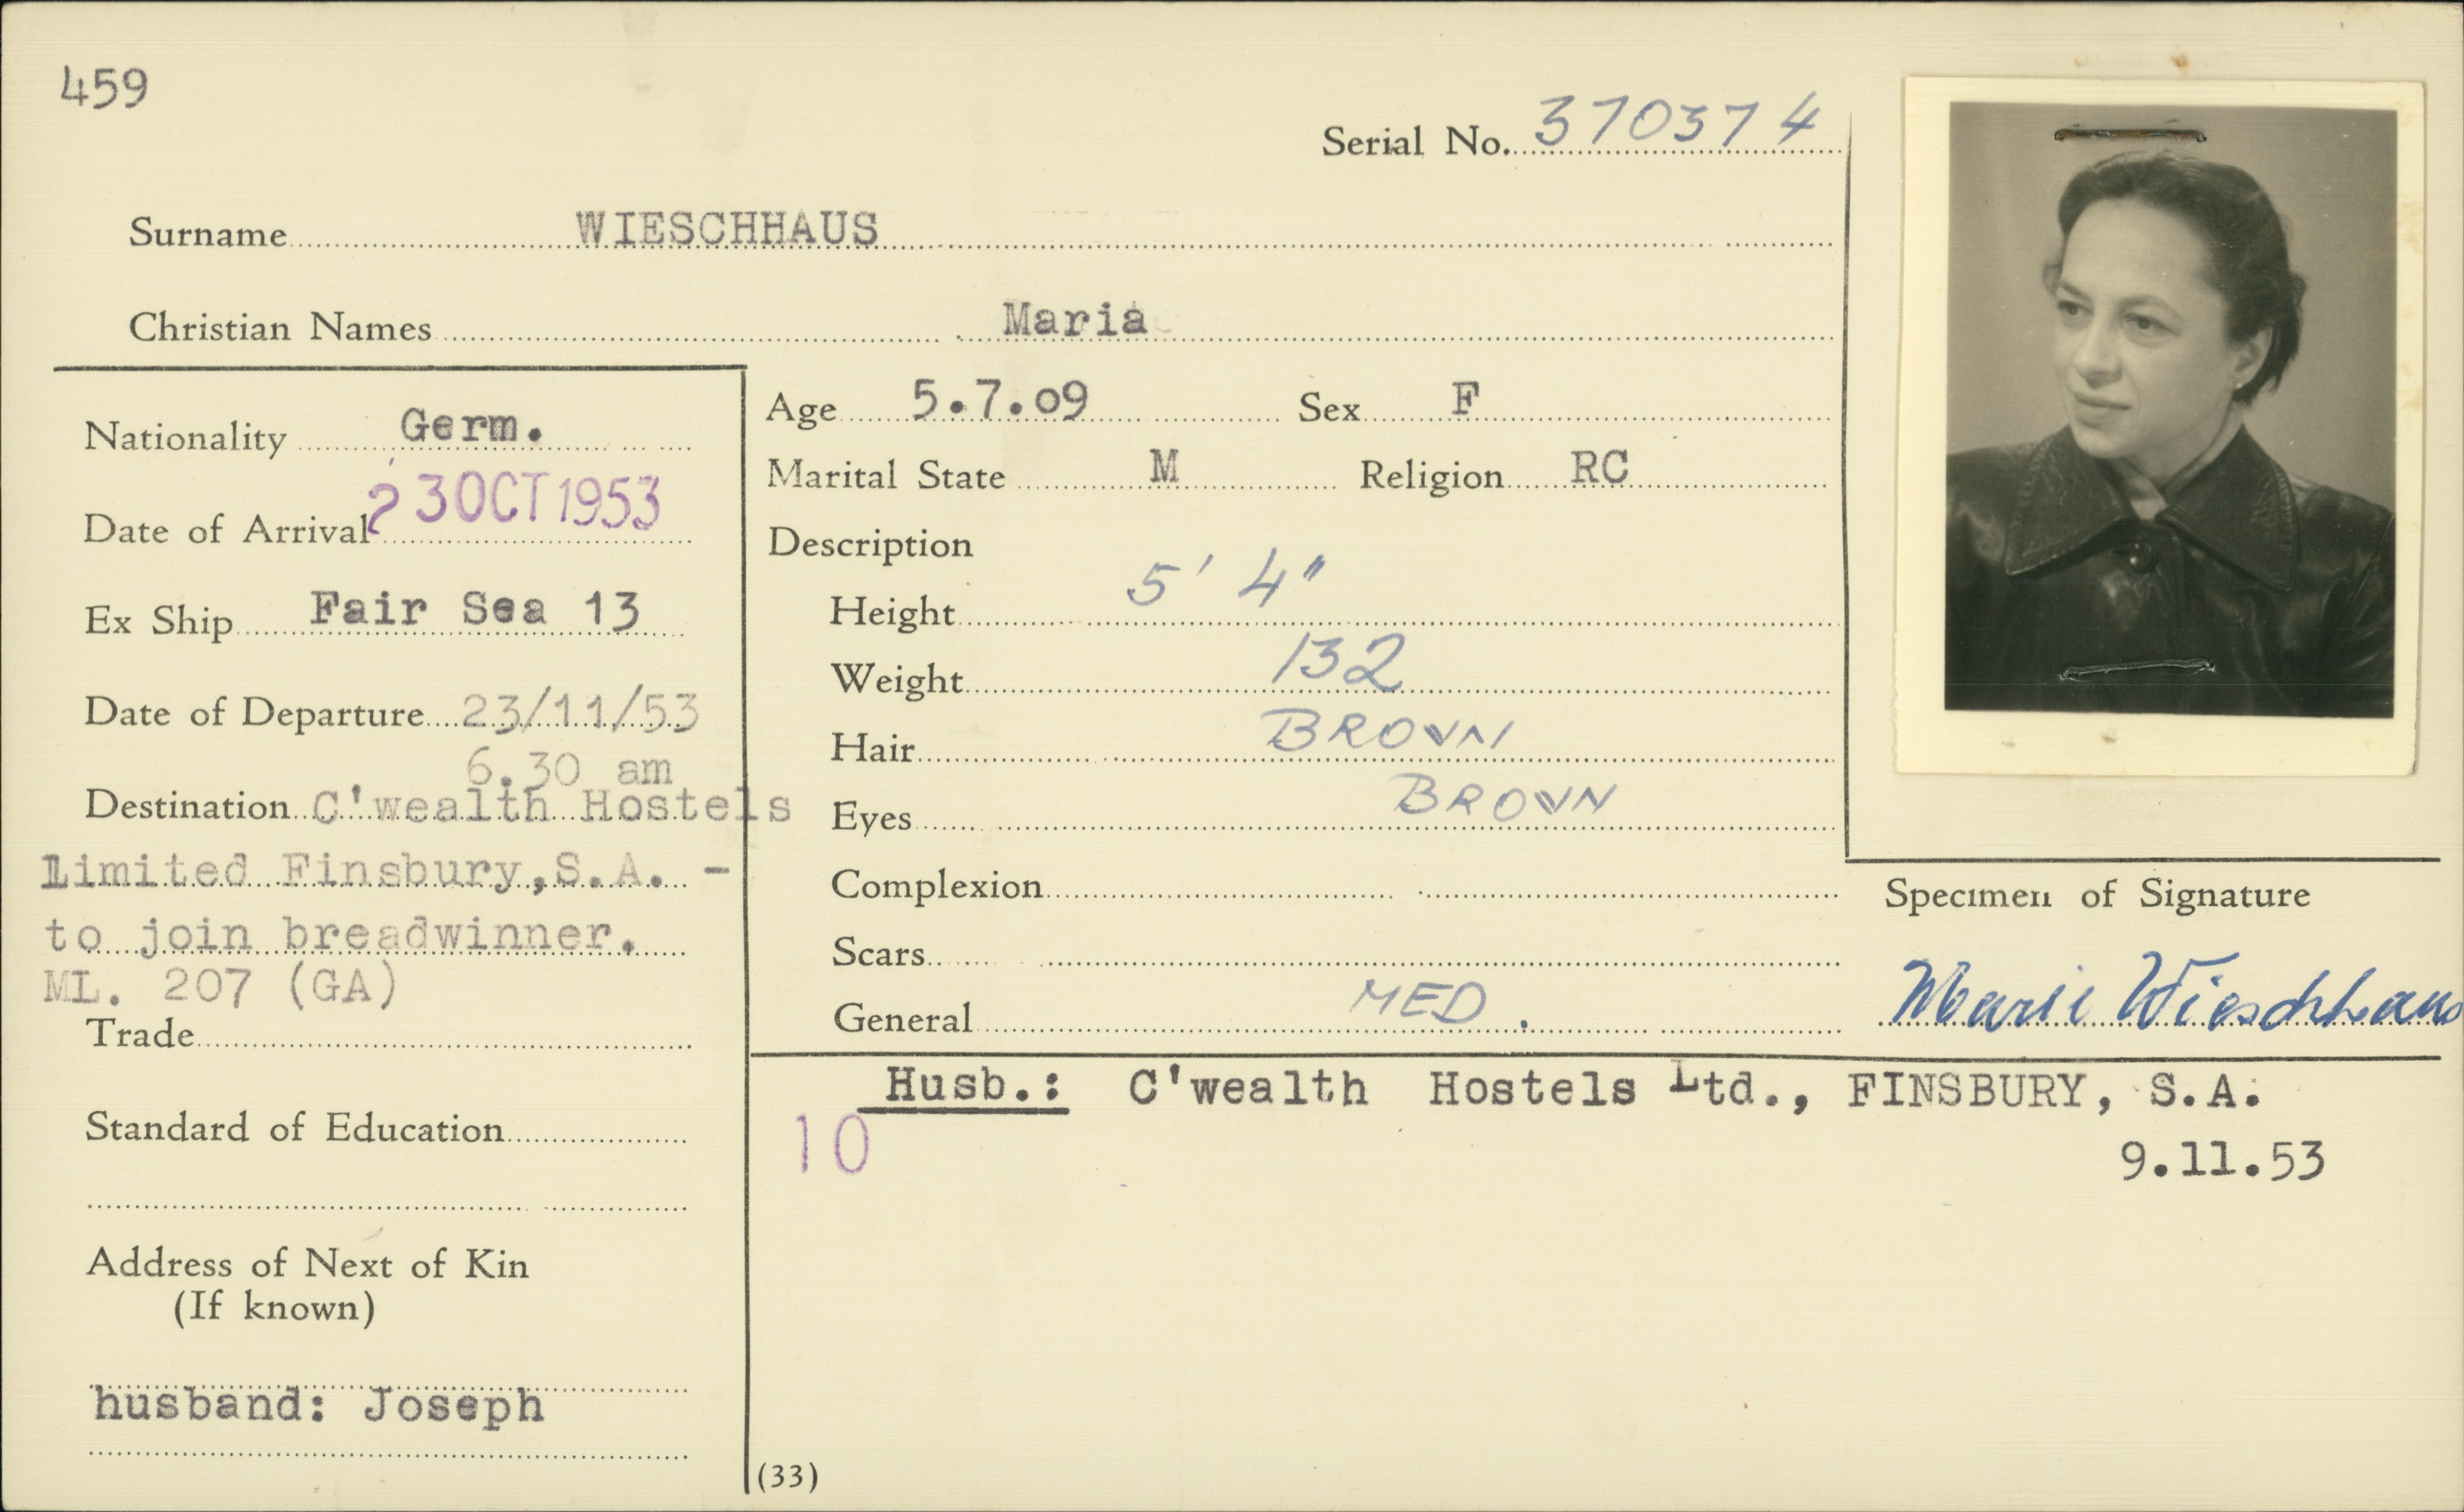 459
Serial No. 370374
Surname WIESCHHAUS
Christian Names Maria
Nationality Germ.
Date of Arrival 23 OCT 1953
Ex Ship Fair Sea 13
Date of Departure 23/11/53
6.30 am
Destination C'wealth Hostels
Limited Finsbury, S.A. -
to join breadwinner.
ML. 207 (GA)
Trade
Standard of Education
Address of Next of Kin
(If known)
husband: Joseph
Age 5.7.09 Sex F
Marital State M Religion RC
Description
Height 5' 4"
Weight 132
Hair BROWN
Eyes BROWN
Complexion
Scars
General MED.
Specimen of Signature
Marie Wieschhaus
Husb.: C'wealth Hostels Ltd., FINSBURY, S.A.
10
9.11.53
(33)